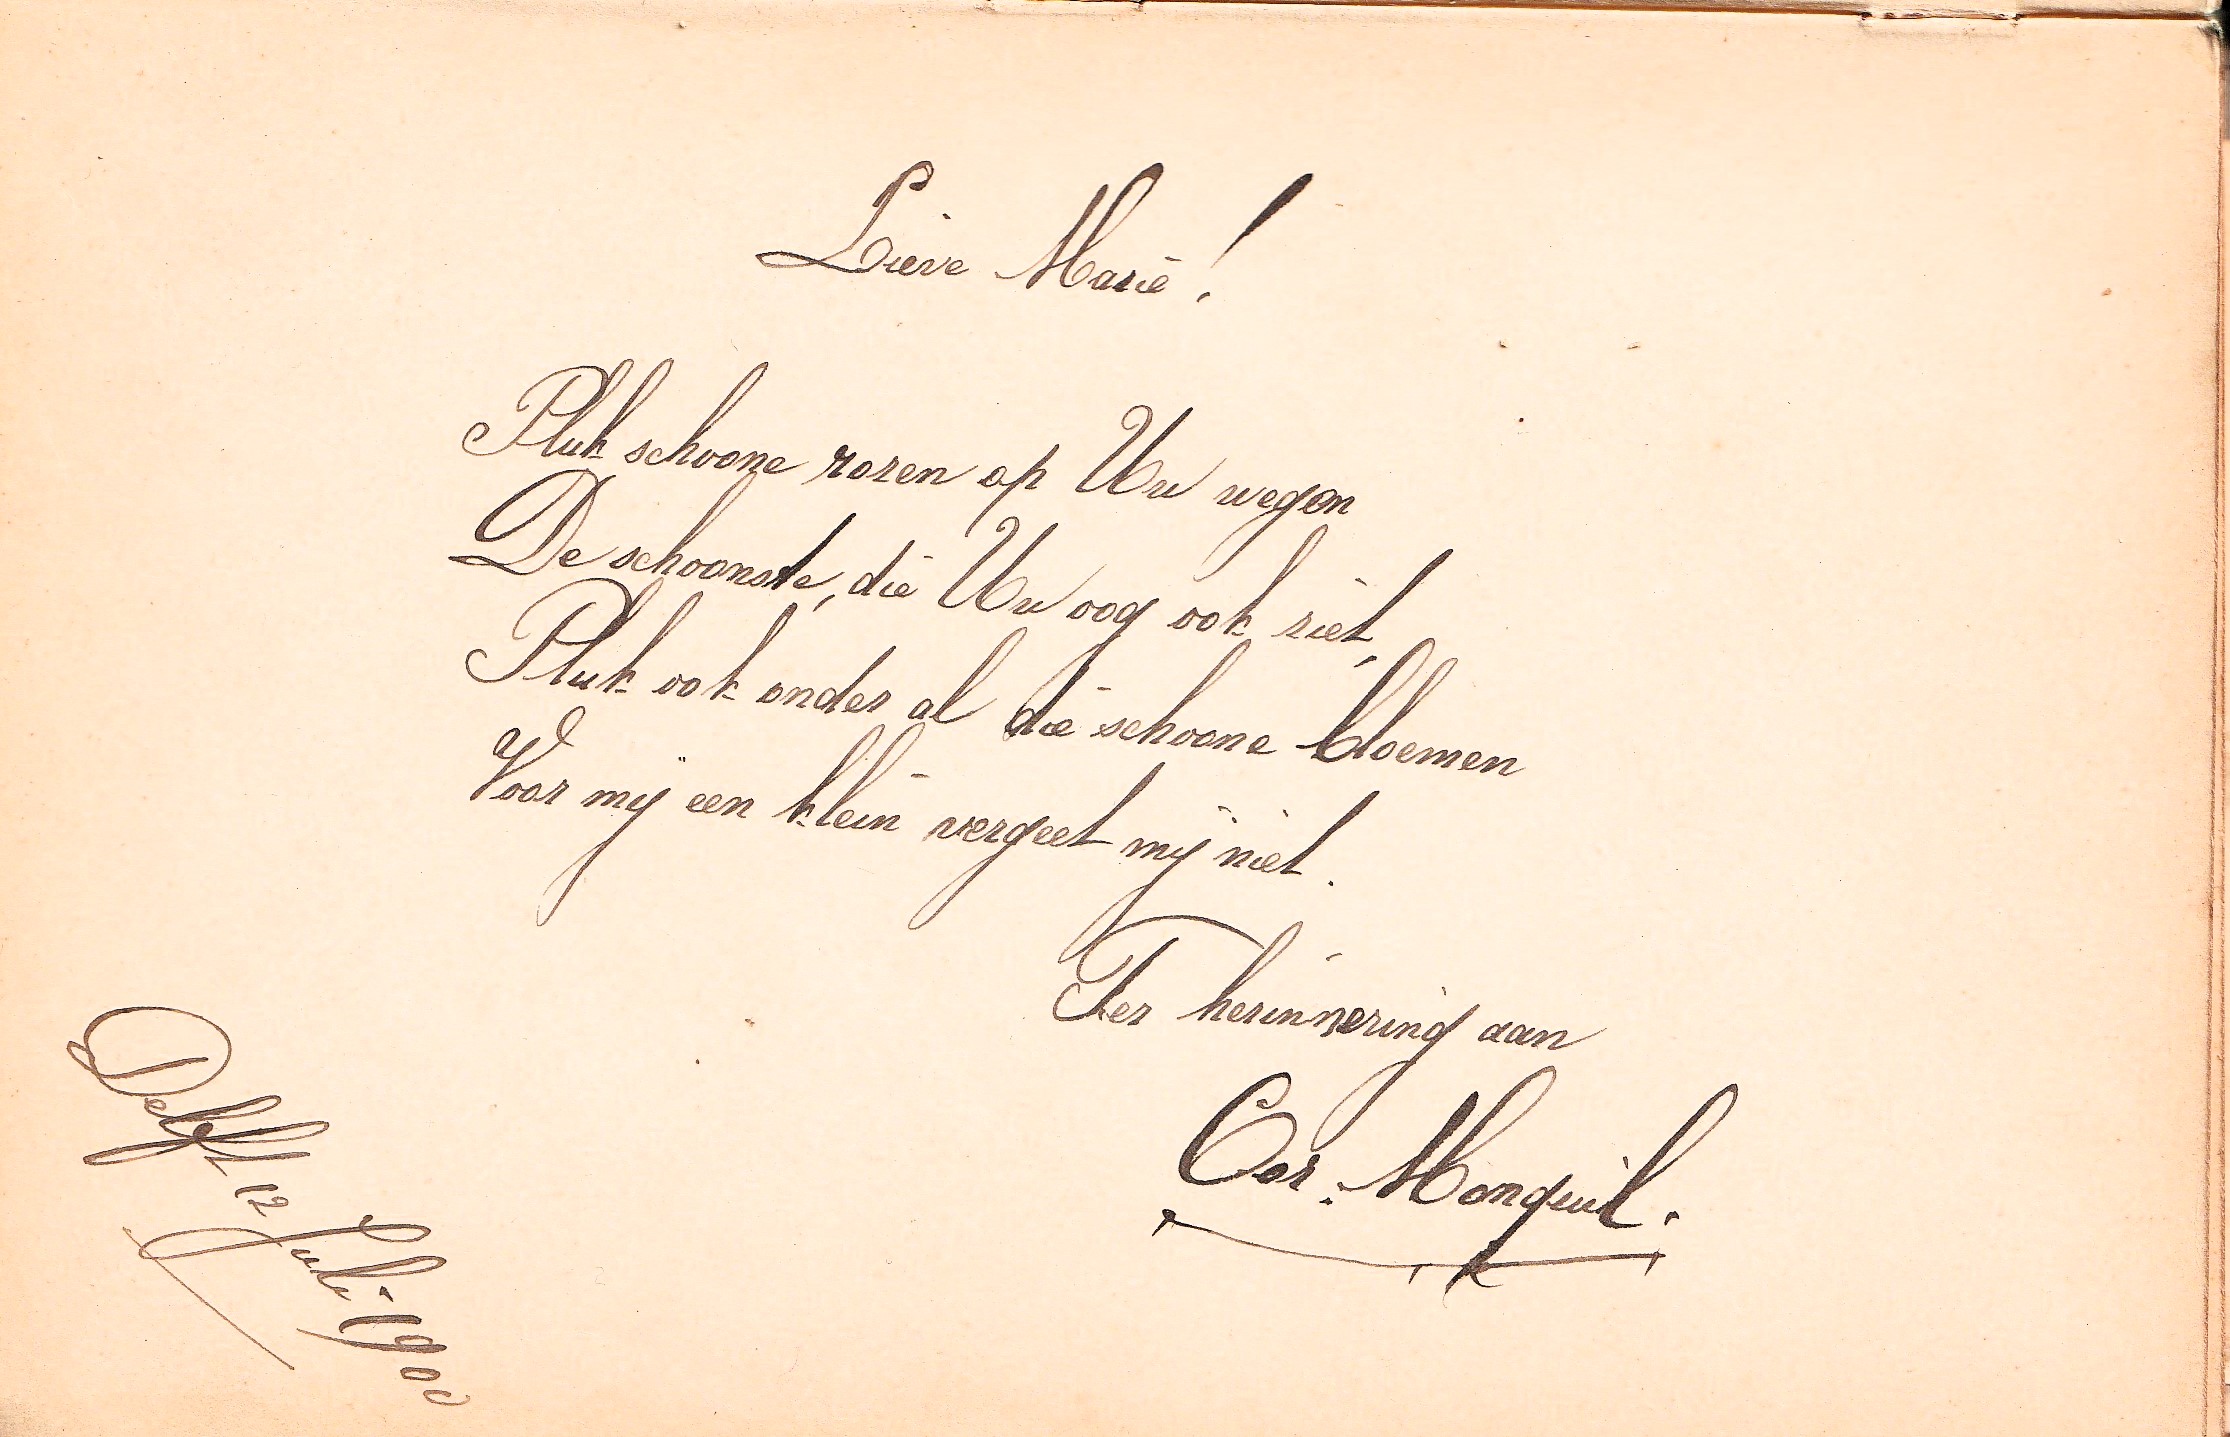 Lieve Marie!
Pluk schoone rozen op Uw wegen
De schoonste, die Uw oog ook ziet,
Pluk ook onder al die schoone bloemen
Voor mij een klein vergeet mij niet.
Ter herinnering aan
Cor. Monquil.
Delft 12 Juli 1900